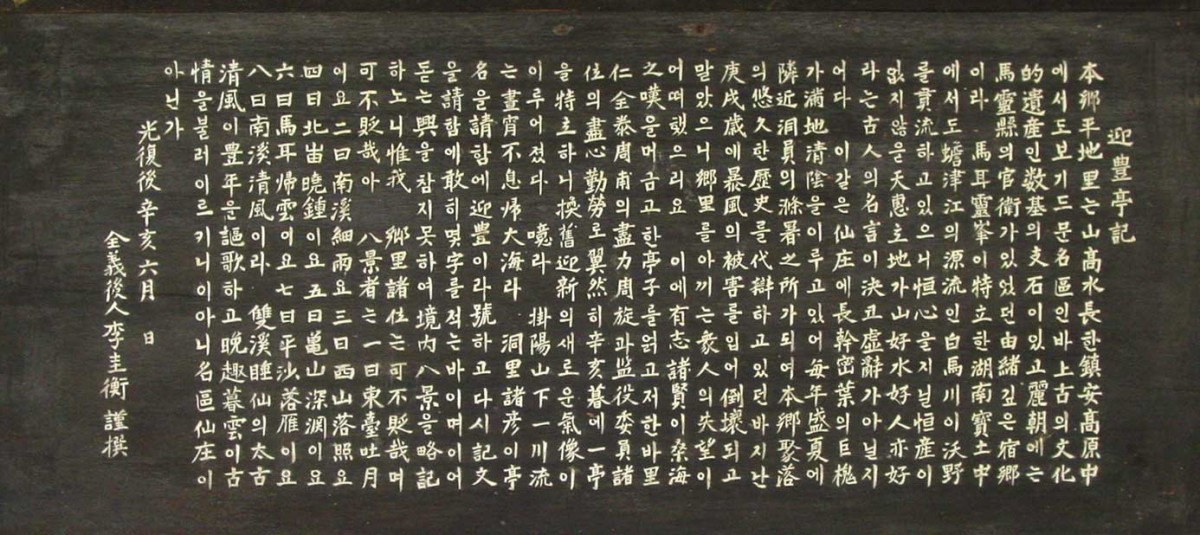 迎豊亭記
本鄉平地里는山高水長한鎮安高原中
에서도보기드문名區인바上古의文化
的遺産인数基의支石이있고麗朝에는
馬靈縣의官衙가있었던由緖깊은宿鄉
이라 馬耳靈峯이特立한湖南寶土中
에서도蟾津江의源流인白馬川이沃野
를貫流하고있으니恒心을지닐恒産이
없지않을天惠主地가山好水好人亦好
라는古人의名言이決코虛辭가아닐지
어다 이같은仙庄에長幹密葉의巨槐
가滿地清陰을이루고있어每年盛夏에
隣近洞員의滌暑之所가되여本鄉聚落
의悠久한歷史를代辯하고있던바지난
庚戌歲에暴風의被害를입어倒壞되고
말았으니鄉里를아끼는衆人의失望이
어떠했으리요 이에有志諸賢이桑海
之嘆을머금고한亭子를읽고저한바里
仁全泰周甫의盡力周旋과監役委員諸
位의盡心勤勞로翼然히辛亥暮에一亭
을特立하니換舊迎新의새로운氣像이
이루어졌다 噫라 掛陽山下一川流
는晝宵不息帰大海라 洞里諸彦이亭
名을請함에迎豊이라號하고다시記文
을請함에敢히몇字를적는바이며이어
돋는興을참지못하여境內八景을略記
하노니惟我 鄉里諸位는可不貶哉며
可不貶哉아 八景者는一曰東臺吐月
이요二曰南溪細雨요三曰西山落照요
四曰北峀曉鍾이요五曰龜山深渊이요
六曰馬耳帰雲이요七曰平沙落雁이요
八曰南溪清風이라 雙溪睡仙의太古
清風이豊年을謳歌하고晩趣暮雲이古
情을불러이르키니이아니名區仙庄이
아닌가
光復後辛亥六月 日
全義後人李圭衡謹撰